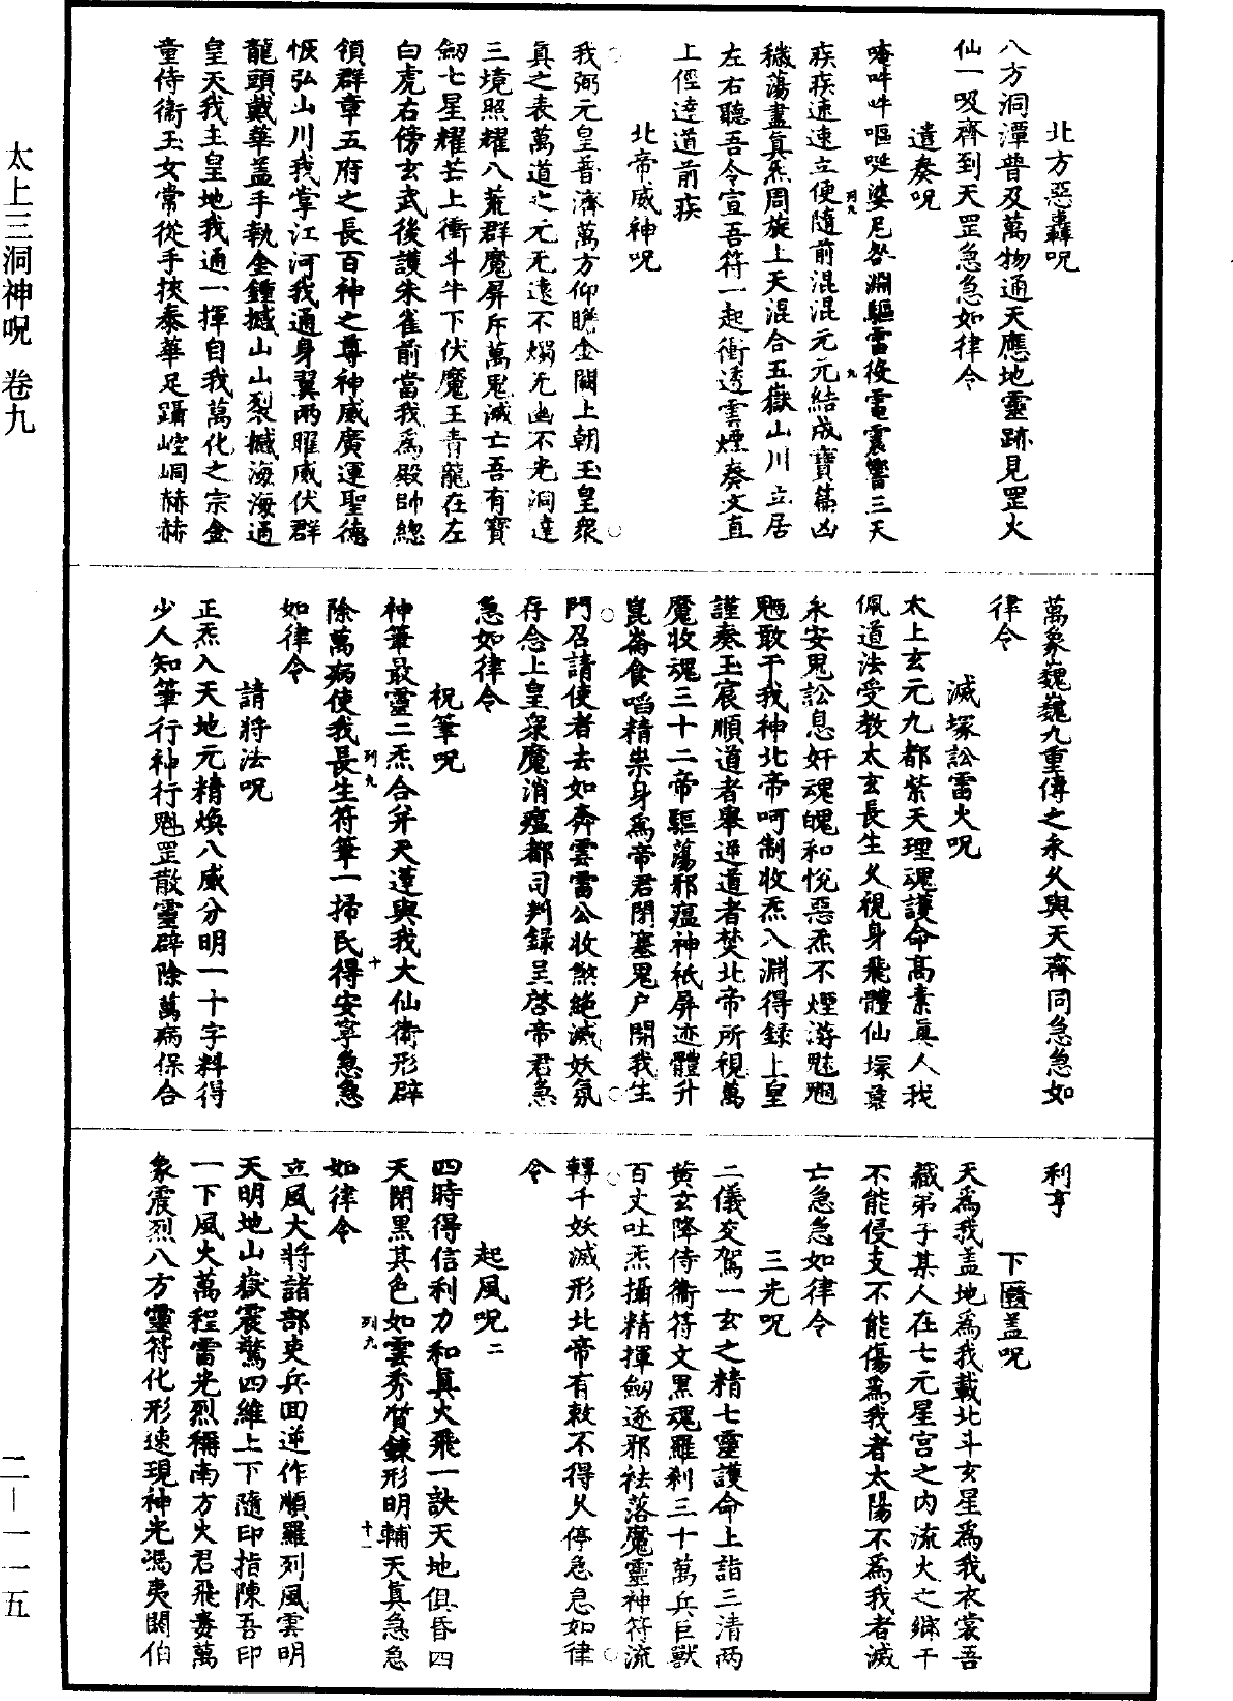 太上三洞神呪 卷九
北方惡轟呪
八方洞潭普及萬物通天應地靈跡見罡火
仙一吸齊到天罡急急如律令
遣奏呪
唵吽吽嘔唗婆尼咎淵驅雷役電震響三天
疾疾速速立便隨前混混元元結成寶篇凶
穢蕩盡真炁周旋上天混合五嶽山川立居
左右聽吾令宣吾符一起衝透雲煙奏文直
上徑達道前疾
北帝威神呪
我弼元皇普濟萬方仰瞻金闕上朝玉皇衆
真之表萬道之元无遠不燭无幽不光洞達
三境照耀八荒群魔屏斥萬鬼滅亡吾有寶
劒七星耀芒上衝斗牛下伏魔王青龍在左
白虎右傍玄武後護朱雀前當我為殿帥總
領群章五府之長百神之尊神威廣運聖德
恢弘山川我掌江河我通身翼兩曜威伏群
龍頭戴華盖手執金鍾撼山山裂撼海海通
皇天我主皇地我通一揮自我萬化之宗金
童侍衛玉女常從手挾泰華足躡崆峒赫赫
萬象巍巍九重傳之永久與天齊同急急如
律令
滅塚訟雷火呪
太上玄元九都紫天理魂護命高素真人我
佩道法受教太玄長生久視身飛體仙塚墓
永安鬼訟息奸魂魄和悅惡炁不煙游魅魍
魎敢干我神北帝呵制收炁入淵得錄上皇
謹奏玉宸順道者舉逆道者焚北帝所視萬
魔收魂三十二帝驅蕩邪瘟神祇屏迹體升
崑崙食啗精祟身為帝君閉塞鬼户開我生
門召請使者去如奔雲雷公收煞絕滅妖氛
存念上皇衆魔消瘟都司判録呈啓帝君急
急如律令
祝筆呪
神筆最靈二炁合并天蓬與我大仙衛形辟
除萬病使我長生符筆一掃民得安寧急急
如律令
請將法呪
正炁入天地元精煥八威分明一十字料得
少人知筆行神行魁罡散靈辟除萬病保合
利亨
下匿盖呪
天為我盖地為我載北斗玄星為我衣裳吾
藏弟子某人在七元星宫之内流火之鄉干
不能侵支不能傷為我者太陽不為我者滅
亡急急如律令
三光呪
二儀交駕一玄之精七靈護命上詣三清两
黄玄降侍衛符文黑魂羅刹三十萬兵巨獸
百丈吐炁攝精揮劒逐邪祛落魔靈神符流
轉千妖滅形北帝有敕不得久停急急如律
令
起風呪二
四時得信利力和真火飛一訣天地俱昏四
天閉黑其色如雲秀質鍊形明輔天真急急
如律令
立風大將諸部吏兵回逆作順羅列風雲明
天明地山嶽震驚四維上下隨印指陳吾印
一下風火萬程雷光烈稱南方火君飛賷萬
象震烈八方靈符化形速現神光馮夷闕伯
二—一一五